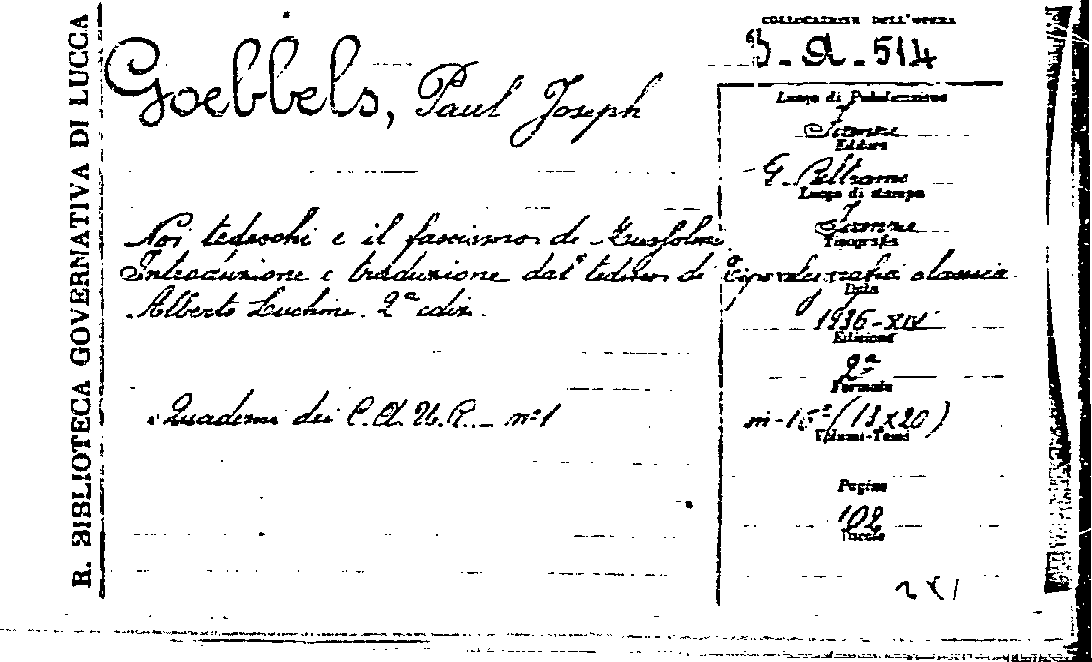 R. BIBLIOTECA GOVERNATIVA DI LUCCA
Goebbels, Paul Joseph
Noi tedeschi e il fascismo di Mussolini
Introduzione e traduzione dal tedesco di
Alberto Luchini. 2ª ediz.
Quaderni dei C.A.U.R. - nº 1
COLLOCAZIONE DELL'OPERA
3-a-514
Luogo di Pubblicazione
Firenze
Editore
G. Beltrami
Luogo di stampa
Firenze
Tipografia
Tipocalcografia classica
Data
1936-XIV
Edizione
2ª
Formato
in-16º (13x20)
Volumi-Tomi
Pagine
102
Tavole